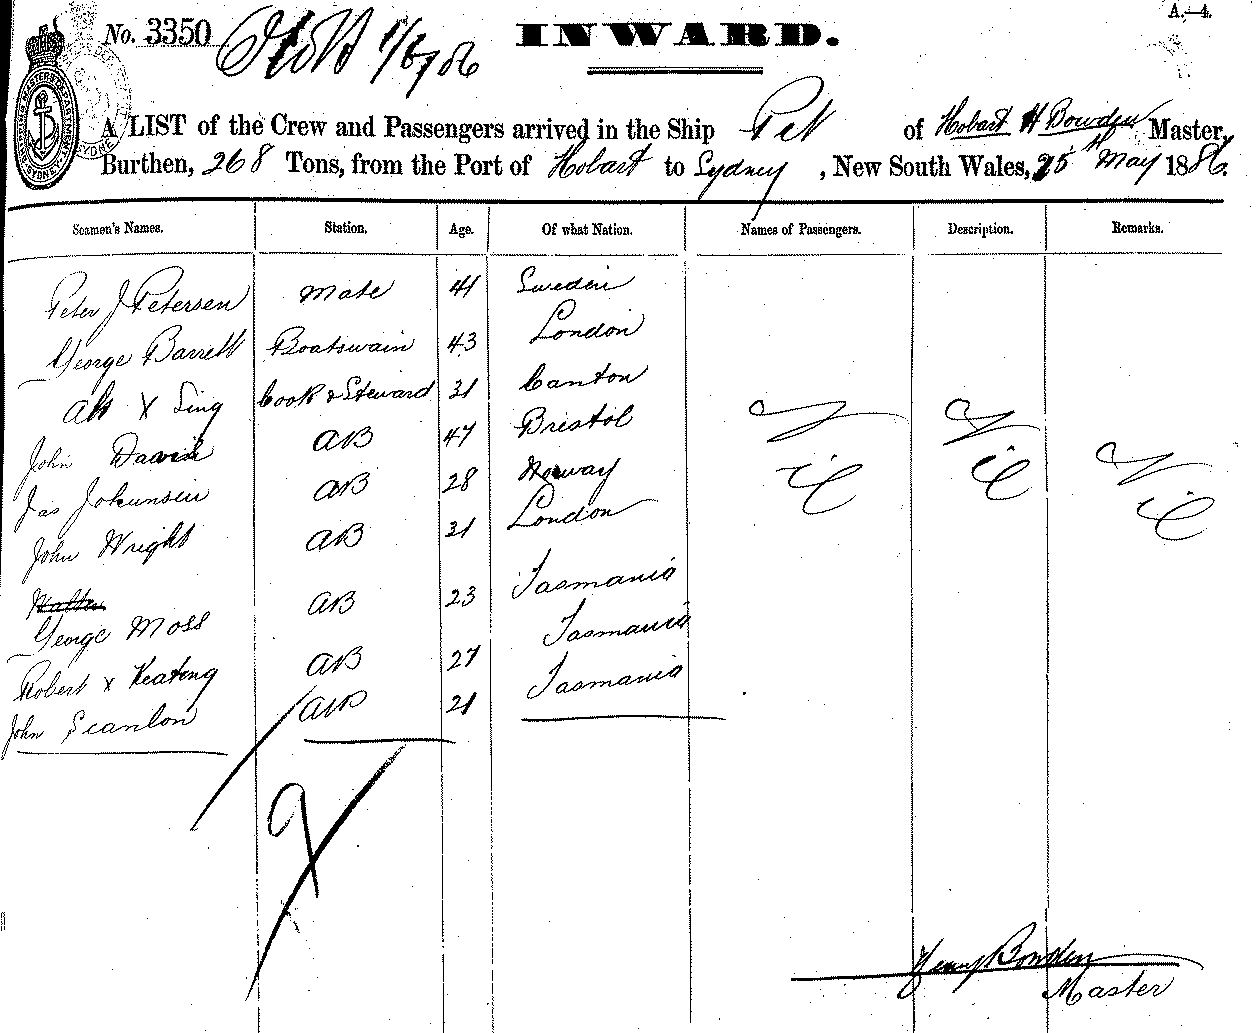 A.—4.
No. 3350 1/6/86 INWARD.
A LIST of the Crew and Passengers arrived in the Ship Pet of Hobart H Bowden Master,
Burthen, 268 Tons, from the Port of Hobart to Sydney, New South Wales, 25th May 1886.
Seamen's Names. Station. Age. Of what Nation. Names of Passengers. Description. Remarks.
Peter J Petersen Mate 41 Sweden
George Barrett Boatswain 43 London
Ah X Sing Cook & Steward 31 Canton
John David AB 47 Bristol
Jas Johunsen AB 28 Norway
John Wright AB 31 London
George Moss AB 23 Tasmania
Robert x Keating AB 27 Tasmania
John Scanlon AB 21 Tasmania
Nil Nil Nil
9
Henry Bowden
Master